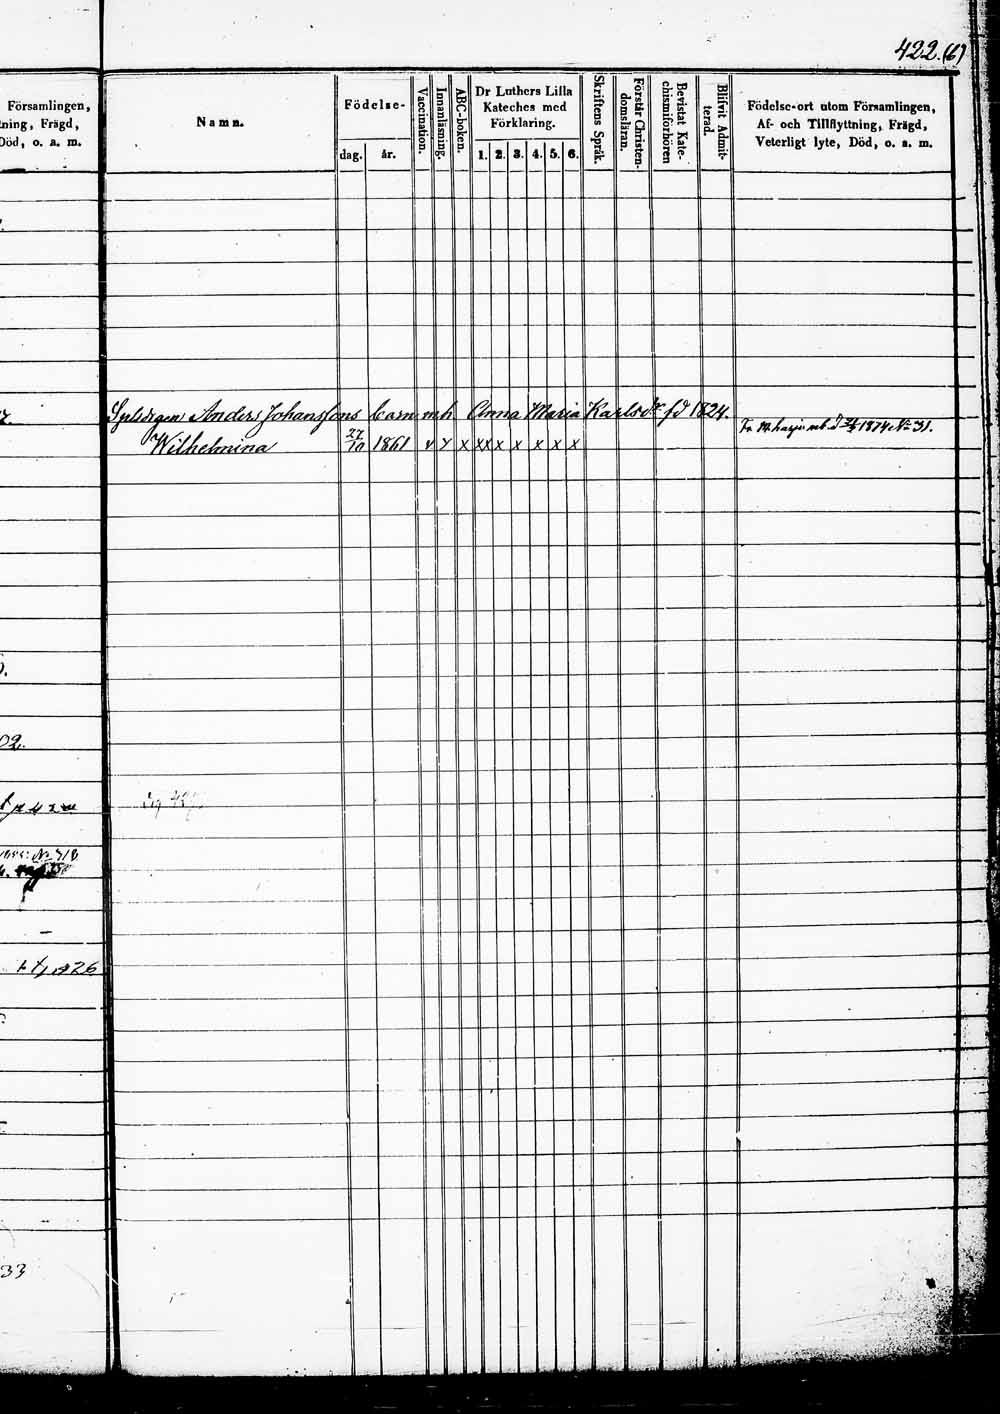 422.(6)
Församlingen,
tning, Frägd,
Död, o. a. m.
Namn.
Födelse-
dag.
år.
Vaccination.
Innanläsning.
ABC-boken.
Dr Luthers Lilla
Kateches med
Förklaring.
1. 2. 3. 4. 5. 6.
Skriftens Språk.
Förstår Christen-
domsläran.
Bevistat Kate-
chismiförhören
Blifvit Admit-
terad.
Födelse-ort utom Församlingen,
Af- och Tillflyttning, Frägd,
Veterligt lyte, Död, o. a. m.
Anders Johanssons barn m.h. Anna Maria Karlsdr f.d 1824.
Wilhelmina 27/10 1861 v y x xx x x x x x
1874 No 31.
02.
1826
33